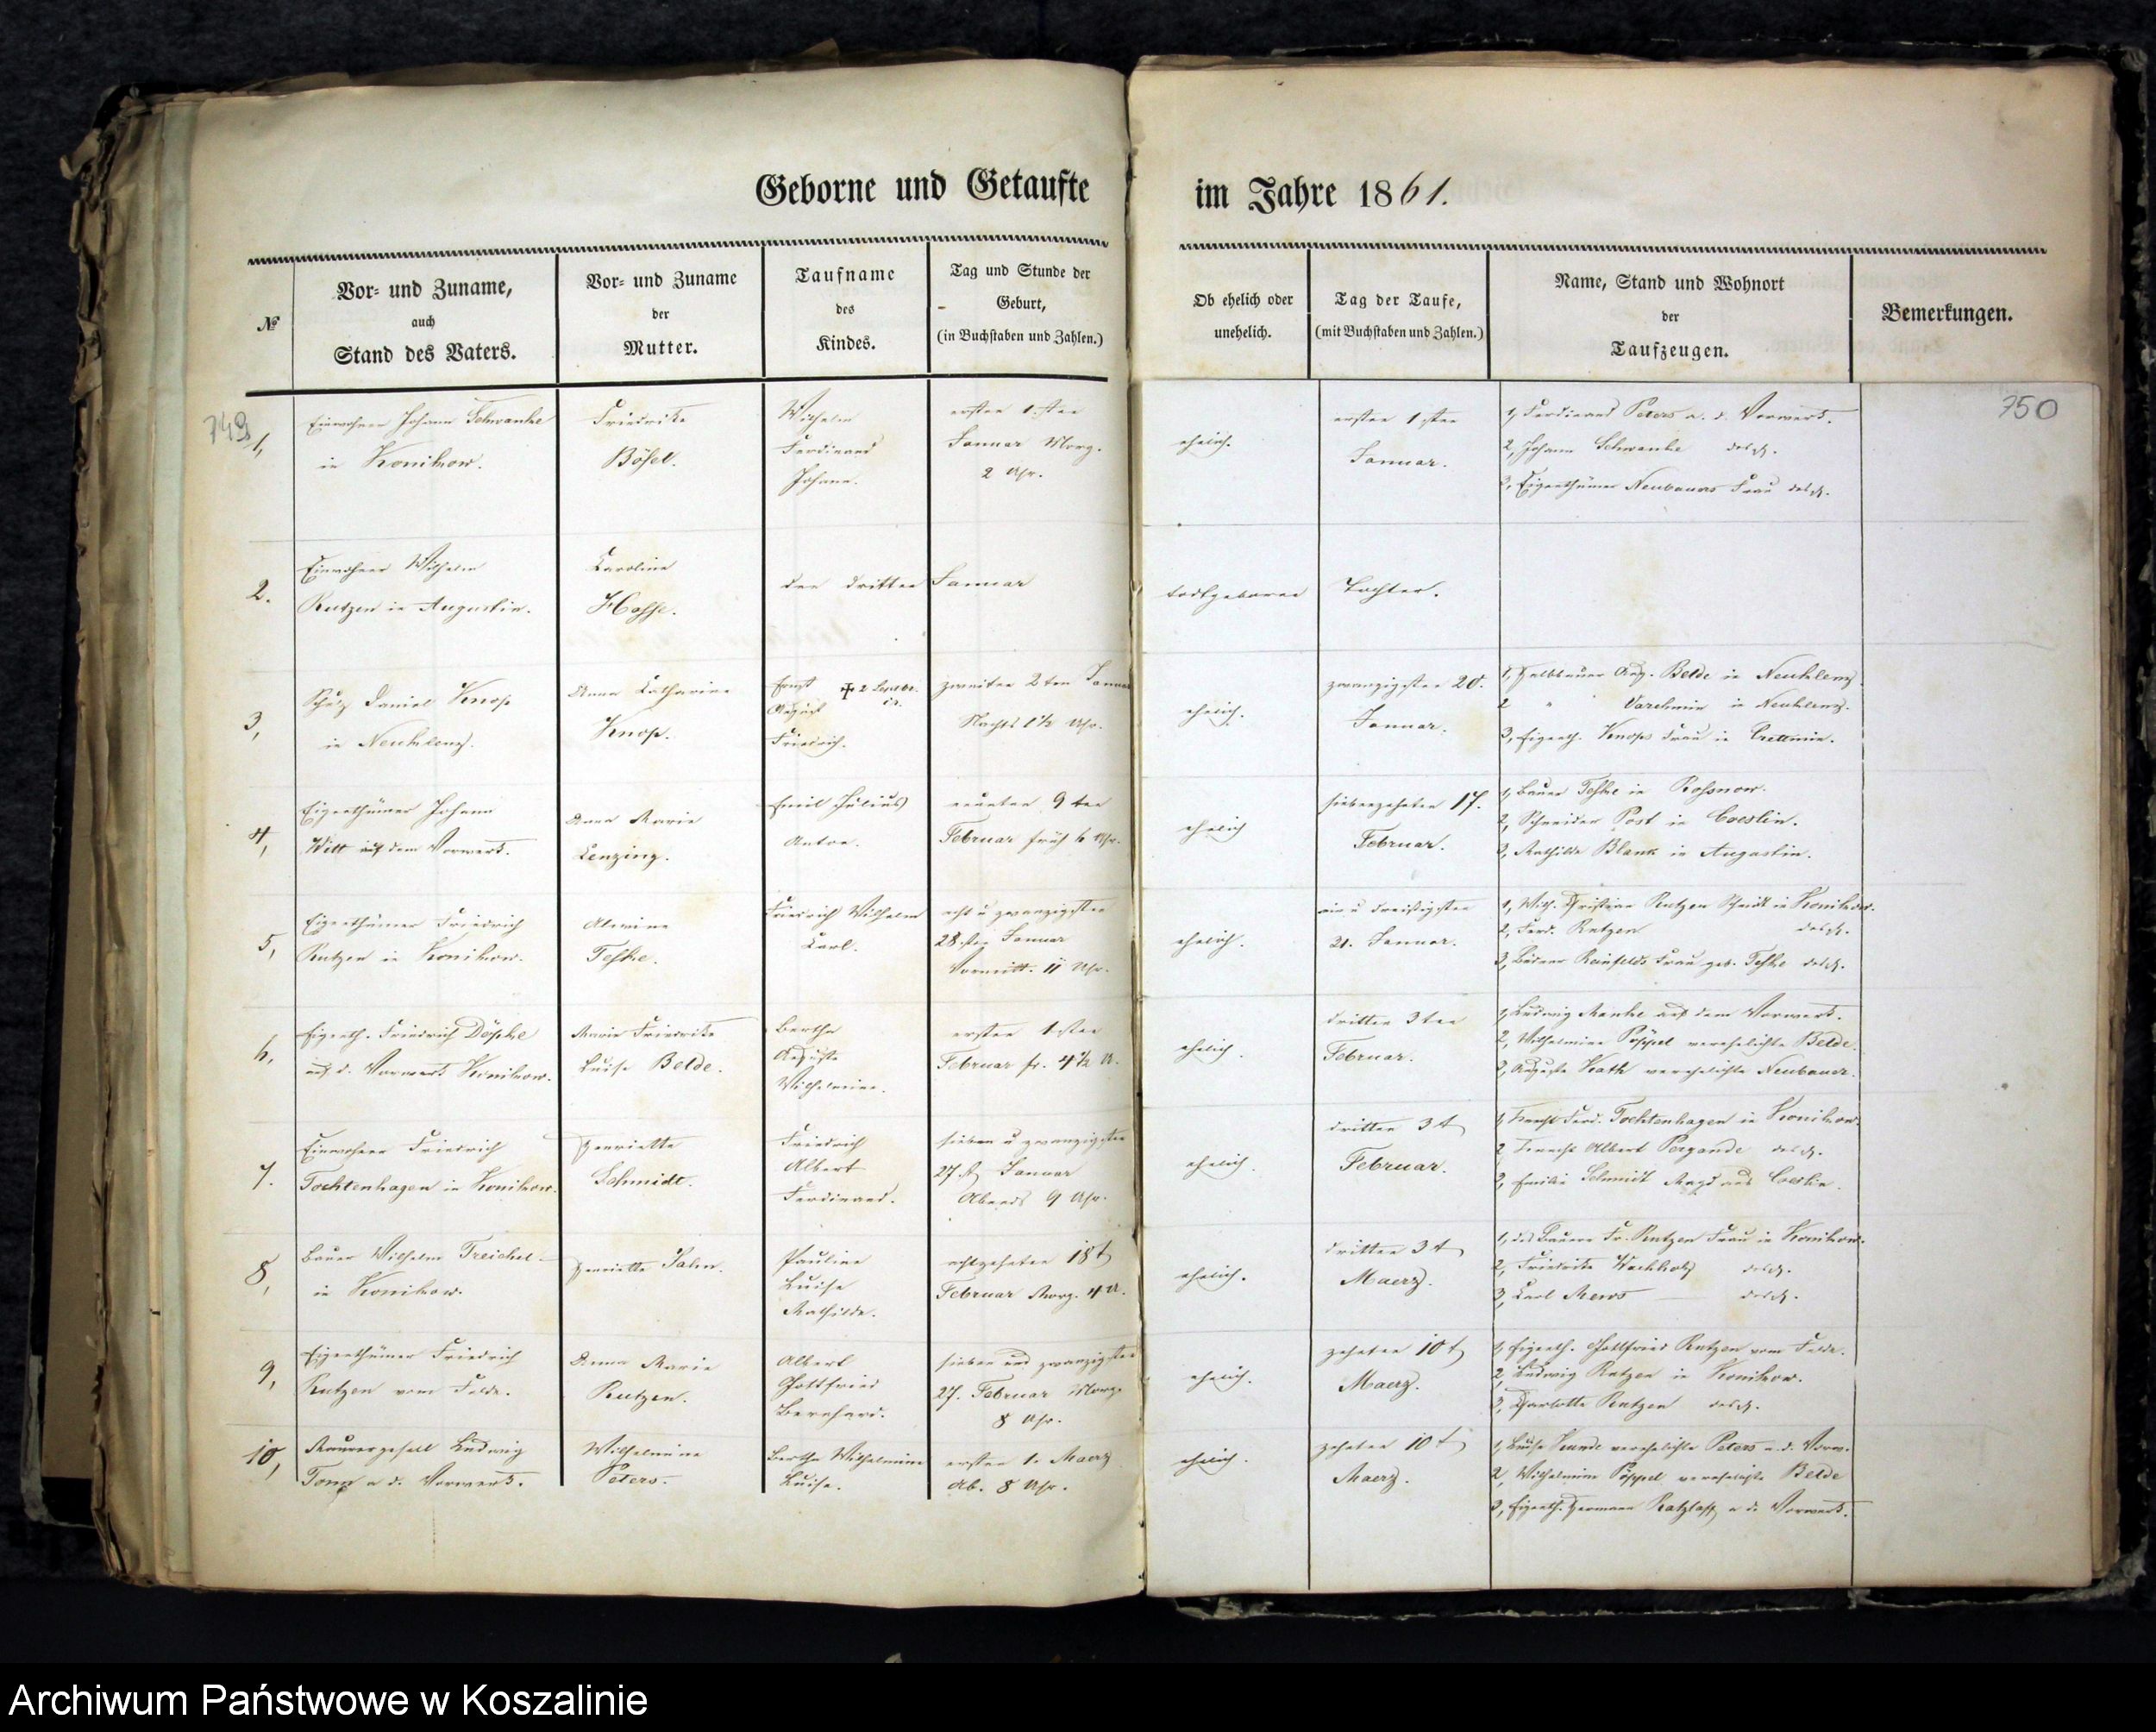 Geborne und Getaufte im Jahre 1861.
№
Vor- und Zuname,
auch
Stand des Vaters.
Vor- und Zuname
der
Mutter.
Taufname
des
Kindes.
Tag und Stunde der
Geburt,
(in Buchstaben und Zahlen.)
Ob ehelich oder
unehelich.
Tag der Taufe,
(mit Buchstaben und Zahlen.)
Name, Stand und Wohnort
der
Taufzeugen.
Bemerkungen.
749
750
1,
Einwohner Johann Schwanke
in Konikow.
Friedrike
Bösel.
Wilhelm
Ferdinand
Johann.
ersten 1sten
Januar Morg.
2 Uhr.
ehelich.
ersten 1sten
Januar.
1, Ferdinand Peters a. d. Vorwerk.
2, Johann Schwanke
3, Eigenthümer Neubauers Frau
2.
Einwohner Wilhelm
Rutzen in Augustin.
Caroline
Hasse.
den dritten Januar
todtgeborne Tochter.
3,
Daniel Knop
in Neuklenz.
Anna Catharine
Knop.
Ernst
August
Friedrich.
zweiten 2ten Januar
Nachts 1½ Uhr.
ehelich.
zwanzigsten 20.
Januar.
1, Halbbauer Aug. Belde in Neuklenz
2 " Varchmin in Neuklenz.
3, Eigenth. Knops Frau in Crettmin.
4,
Eigenthümer Johann
Witt auf dem Vorwerk.
Anna Marie
Lenzing.
Emil Julius
Anton.
neunten 9ten
Februar früh 6 Uhr.
ehelich
siebenzehnten 17.
Februar.
1, Bauer Teske in Rossnow.
2, Schneider Post in Coeslin.
3, Mathilde Blank in Augustin.
5,
Eigenthümer Friedrich
Rutzen in Konikow.
Alwine
Teske.
Friedrich Wilhelm
Carl.
acht u zwanzigsten
28sten Januar
Vormitt. 11 Uhr.
ehelich.
ein u dreißigsten
31. Januar.
1, Wilh. Christian Rutzen in Konikow.
2, Ferd. Rutzen
3, Bauer Reinfelds Frau geb. Teske
6,
Eigenth. Friedrich Döpke
auf d. Vorwerk Konikow.
Marie Friedrike
Luise Belde.
Bertha
Auguste
Wilhelmine.
ersten 1sten
Februar fr. 4½ U.
ehelich.
dritten 3ten
Februar.
1, Ludwig Manke auf dem Vorwerk.
2, Wilhelmine Pöppel verehelichte Belde.
3, Auguste Kath verehelichte Neubauer.
7.
Einwohner Friedrich
Tochtenhagen in Konikow.
Henriette
Schmidt.
Friedrich
Albert
Ferdinand.
sieben u zwanzigsten
27 Januar
Abends 9 Uhr.
ehelich.
dritten 3t
Februar.
1, Knecht Ferd. Tochtenhagen in Konikow.
2 Knecht Albert Pergande
3, Emilie Schmidt Magd aus Coeslin.
8,
Bauer Wilhelm Treichel
in Konikow.
Henriette Jahn.
Pauline
Luise
Mathilde.
achtzehnten 18t
Februar Morg. 4 U.
ehelich.
dritten 3t
Maerz.
1, des Bauern Fr. Rutzen Frau in Konikow.
2, Friedrike Wachholz
3, Carl Mews
9,
Eigenthümer Friedrich
Rutzen vom Felde.
Anna Marie
Rutzen.
Albert
Gottfried
Bernhard.
sieben und zwanzigsten
27. Februar Morg.
8 Uhr.
ehelich.
zehnten 10t
Maerz.
1, Eigenth. Gottfried Rutzen vom Felde.
2, Ludwig Rutzen in Konikow.
3, Charlotte Rutzen
10,
Maurergesell Ludwig
Tonn a d. Vorwerk.
Wilhelmine
Peters.
Bertha Wilhelmine
Luise.
ersten 1. Maerz
Ab. 8 Uhr.
ehelich.
zehnten 10t
Maerz.
1, Luise verehelichte Peters a. d. Vorw.
2, Wilhelmine Pöppel verehelichte Belde
3, Eigenth. Hermann Ratzlaff a d. Vorwerk.
Archiwum Państwowe w Koszalinie